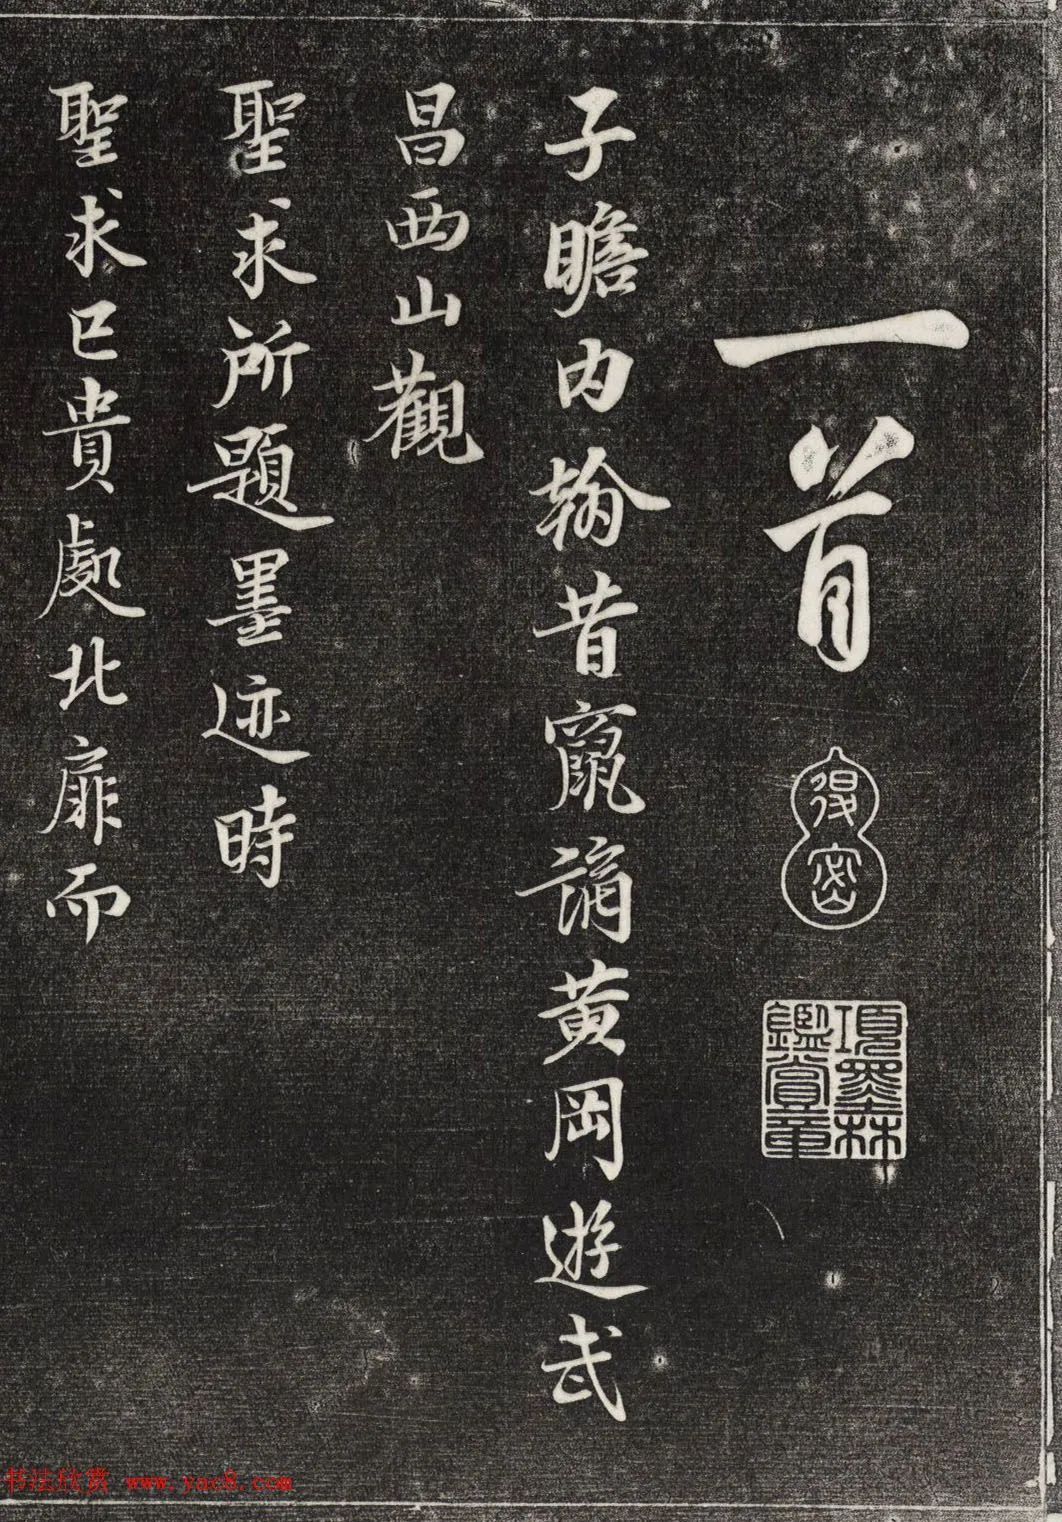 一首
得密
項墨林
鑑賞章
子瞻内翰昔竄謫黄岡遊武
昌西山觀
聖求所題墨迹時
聖求已貴處北扉而
书法欣赏 www.yac8.com